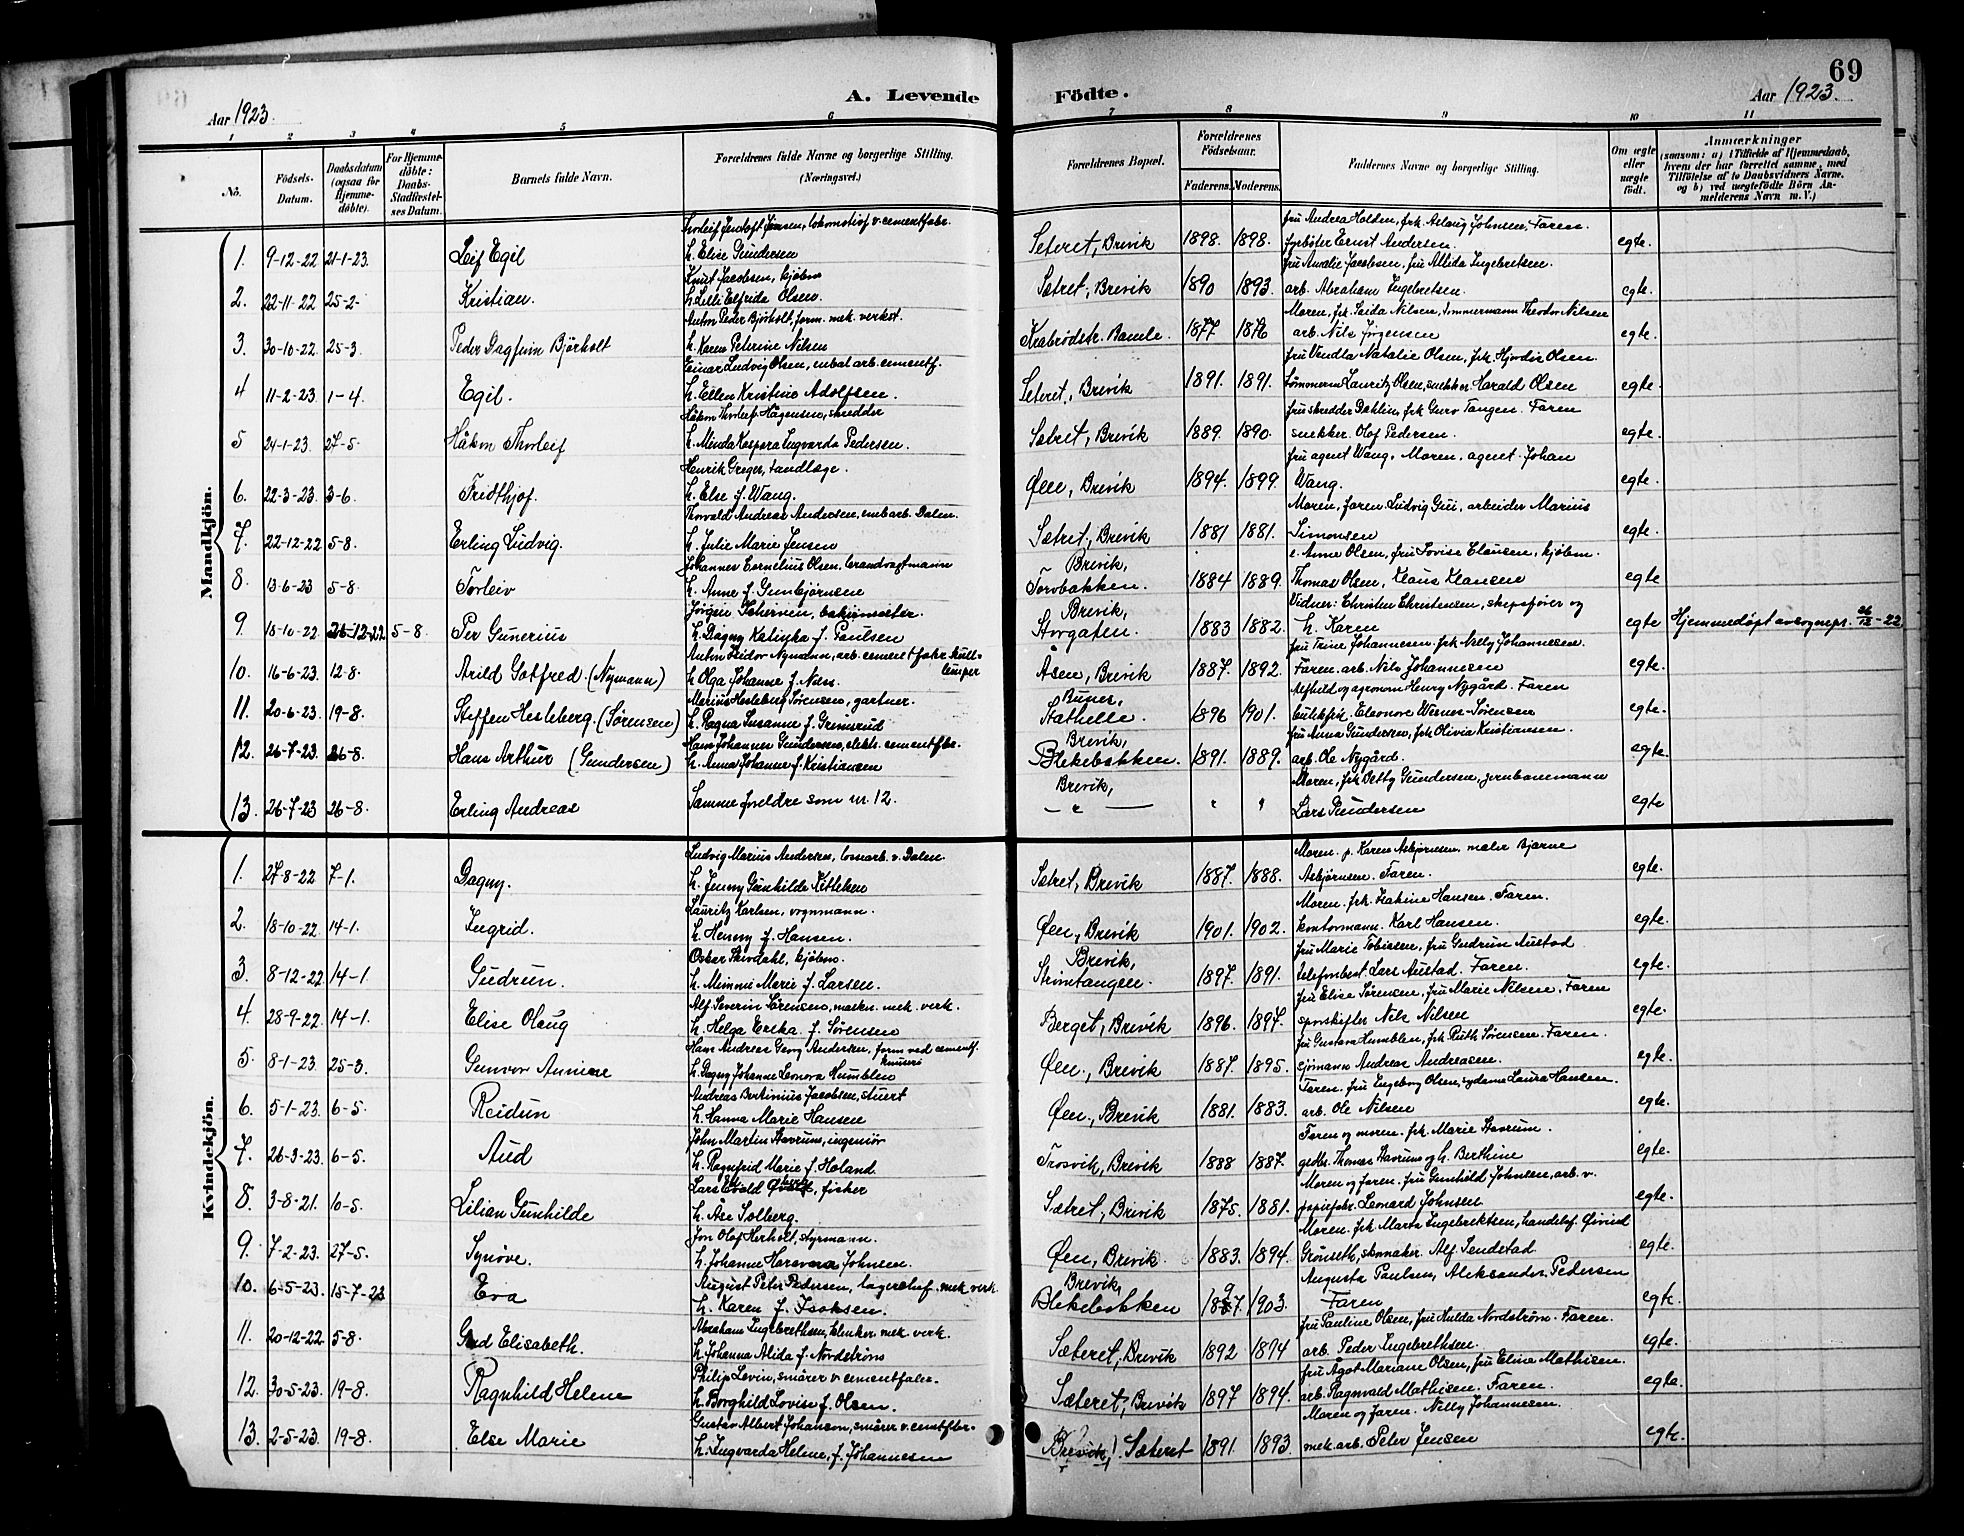 69
A. Levende Födte.
Aar 1923.
Aar 1923.
1 2 3 4 5 6 7 8 9 10 11
No. Födsels-Datum. Daabsdatum (ogsaa for Hjemme-döbte). For Hjemme-döbte: Daabs-Stadfæstel-ses Datum. Barnets fulde Navn. Forældrenes fulde Navne og borgerlige Stilling. (Næringsvei.) Forældrenes Bopæl. Forældrenes Födselsaar. Faderens. Moderens. Faddernes Navne og borgerlige Stilling. Om ægte eller uægte födt. Anmærkninger (saasom: a) i Tilfælde af Hjemmedaab, hvem der har forrettet samme, med Tilföielse af to Daabsvidners Navne. og b) ved uægtefödte Börn An-melderens Navn m. V.)
Mandkjön.
Thorleif Jentoft Jensen, lokomotivf. v. cementfabr. fru Andrea Holden, frk. Aslaug Johnsen, Faren.
1. 9-12-22 21-1-23. Leif Egil h. Elise Gundersen Seteret, Brevik 1898. 1898. fyrbøter Ernst Andersen. egte.
Knut Jacobsen, kjøbm fru Amalie Jacobsen, fru Alida Ingebretsen.
2. 22-11-22 25-2- Kristian. h. Lilli Elfrida Olsen. Sætret, Brevik 1890 1893. arb. Abraham Ingebretsen. egte.
Anton Peder Bjørholt, form. mek. verkst. Moren, frk. Saida Nilsen, tømmermann Theodor Nilsen
3. 30-10-22 25-3. Peder Dagfinn Björholt h. Karen Petrine Nilsen Krabrødstr. Bamle. 1877 1876 arb. Nils Jørgensen egte.
Einar Ludvig Olsen, enbal. arb. cementf. fru Vendla Natalie Olsen, frk. Hjørdis Olsen.
4 11-2-23. 1-4. Egil. h. Ellen Kristine Adolfsen. Seteret, Brevik 1891. 1891. tømmerm Lauritz Olsen, snekker Harald Olsen egte.
Håkon Thorleif Hågensen, skredder fru skredder Dahlin, frk. Guro Tangen. Faren
5 24-1-23. 27-5. Håkon Thorleif h. Minda Kaspara Ingvarda Pedersen. Sætret, Brevik 1889. 1890. snekker. Olof Pedersen. egte.
Henrik Greger, tandlæge. fru agent Wang. Moren. agent Johan
6. 22-3-23. 3-6. Fridthjof. h. Else f. Wang. Øen, Brevik 1894. 1899. Wang. egte.
Thorvald Andreas Andersen, emb.arb. Dalen. Moren, faren Ludvig Gui, arbeider Marius
7. 22-12-22 5-8. Erling Ludvig. h. Julie Marie Jensen Sætret, Brevik 1881 1881. Simonsen egte.
Johannes Cornelius Olsen, brandvagtmann Brevik, e. Anne Olsen, fru Lovise Clausen, kjøbm.
8. 13-6-23 5-8. Torleiv h. Anne f. Gunbjørnsen Torvbakken. 1884 1889. Thomas Olsen, Klaus Klausen egte
Jørgen, bakermester. Brevik, Vidner: Christen Christensen, skipsfører og
9. 18-10-22. 26-12-22 5-8. Per Gunerius h. Dagny Katinka f. Paulsen Storgaten. 1883 1882. h. Karen egte Hjemmedøpt av sognepr. 26/12-22
Anton Isidor Nymann, arb. cementfabr. kull-lemper fru Trine Johannesen frk. Nelly Johannesen.
10. 16-6-23. 12-8. Arild Gotfred. (Nymann) h. Olga Johanne f. Nilss. Åsen, Brevik 1887. 1892. Faren. arb. Nils Johannesen egte.
Marius Hesleberg Sørensen, gartner. Bunes, Alfhild og agronom Henry Nygård. Faren
11. 20-6-23. 19-8. Steffen Hesleberg. (Sörensen) h. Ragna Susanne f. Grimsrud Stathelle. 1896 1901. butikfrk. Eleonore Werner-Sørensen egte.
Hans Johannes Gundersen, elektr. cementfbr. Brevik, fru Anna Gundersen, frk. Olivia Kristiansen.
12. 26-7-23. 26-8. Hans Arthur (Gundersen) h. Anna Johanne f. Kristiansen Blekebakken. 1891. 1889. arb. Ole Nygård. egte.
Brevik, Moren, frk. Betty Gundersen, jernbanemann
13. 26-7-23 26-8. Erling Andreas Samme foreldre som nr. 12. — " — " " Lars Gundersen egte
Kvindekjön.
Ludvig Marius Andersen, tomtarb. v. Dalen. Moren. p. Karen Asbjørnsen. maler Bjarne
1. 27-8-22 7-1. Dagny. h. Jenny Gunhilde Kittilsen Sætret, Brevik 1887. 1888. Asbjørnsen. Faren. egte.
Lauritz Karlsen, vognmann. Moren. frk. Hansen. Faren.
2. 18-10-22. 14-1. Ingrid. h. Henny f. Hansen. Øen, Brevik 1901. 1902. kontormann. Karl Hansen. egte.
Oskar Skivdahl, kjøbm. Brevik, fru Marie Tobiesen, fru Gudrun Austad
3. 8-12-22. 14-1. Gudrun. h. Mimmi Marie f. Larsen. Strømtangen. 1897. 1891. telefonbest. Lars Austad. Faren. egte.
Alf Severin Sörensen, maskn. mek. verk. fru Elise Sørensen, fru Marie Nilsen. Faren
4. 28-9-22. 14-1. Elise Olaug h. Helga Erika f. Sørensen Berget, Brevik 1896. 1897. sporskifter Nils Nilsen egte.
Hans Andreas Georg Andersen, form ved cementf. knuseri fru Gustava Humblen, frk. Ruth Sørensen. Faren.
5. 8-1-23. 25-3. Gunvor h. Dagny Johanne Leonora Humblen Øen., Brevik 1887. 1895. sjømann Andreas Andreasen. egte.
Andreas Bertinius Jacobsen, stuert Faren. fru Ingeborg Olsen, sydame Laura Hansen.
6. 5-1-23. 6-5. Reidun h. Hanna Marie Hansen Øen., Brevik 1881. 1883. arb. Ole Nilsen egte.
John Martin Stavrum, ingeniør Faren og moren. frk. Marie Stavrum.
7. 26-3-23. 6-5. Aud h. Ragnfrid Marie f. Holand Trosvik, Brevik 1888 1887. gedbr. Thomas Stavrum og h. Berthine egte.
Lars Evald Øvald, fisker Moren og faren. fru Gunhild Johnsen, arb. v.
8. 3-8-21. 10-5. Lilian Gunhilde h. Åse Solberg. Sætret, Brevik 1875. 1881. papirfabr. Leonard Johnsen egte.
Jon Olaf Herholt, styrmann. Moren. frk. Marta Ingebrektsen, handelsf. Øivind
9. 7-2-23. 27-5. Synöve. h. Johanne Johnsen. Øen, Brevik. 1883. 1894. Grönseth, skomaker. Alf Tendstad egte.
August Peter Pedersen, lagerchef. mek. verk. Brevik, Augusta Paulsen, Aleksander Pedersen
10. 6-5-23. 15-7-23 Eva h. Karen f. Isaksen. Blekebakken 1897. 1903. Faren egte.
Abraham Ingebrethsen, klinker mek. verk. fru Pauline Olsen, fru Hulda Nordstrøm. Faren.
11. 20-12-22. 5-8. Gud Elisabeth. h. Johanna Alida f. Nordstrøm Sæteret, Brevik 1892 1894 arb. Peder Ingebrethsen. egte.
Philip Levin, smører v. cementfabr. fru Ågot Mariane Olsen, fru Eline Mathisen.
12. 30-5-23. 19-8. Ragnhild Helene h. Borghild Lovise f. Olsen. Sæteret, Brevik 1897 1894. arb. Ragnvald Mathisen. Faren. egte.
Gustav Albert Johansen, smører v. cemtfbr. Moren og faren. Nelly Johannesen.
13. 2-5-23. 19-8. Else Marie h. Ingvarda Helene, f. Johannesen Brevik, Sæteret 1891. 1893. mek. arb. Peter Jensen egte.